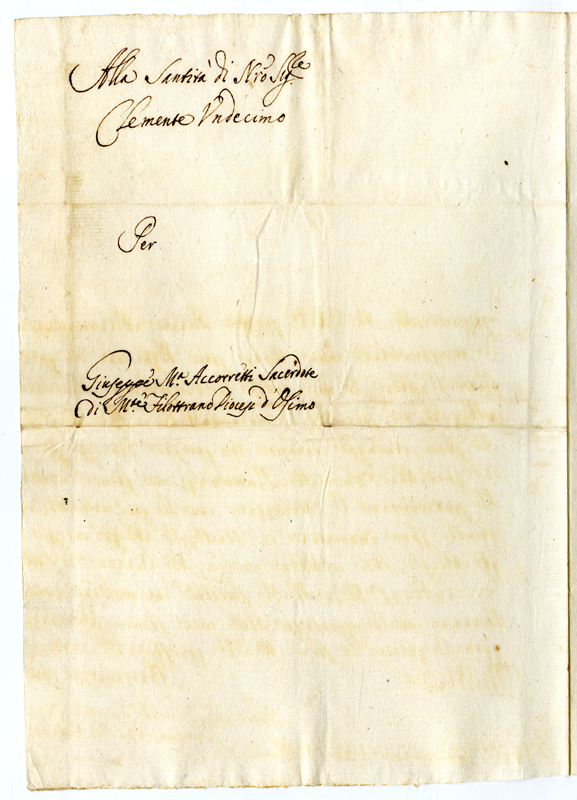 Alla Santità di Nro Sigre
Clemente Vndecimo
Per
Giuseppe Ma Accorretti Sacerdote
di Mte Filottrano Diocesi d'Osimo